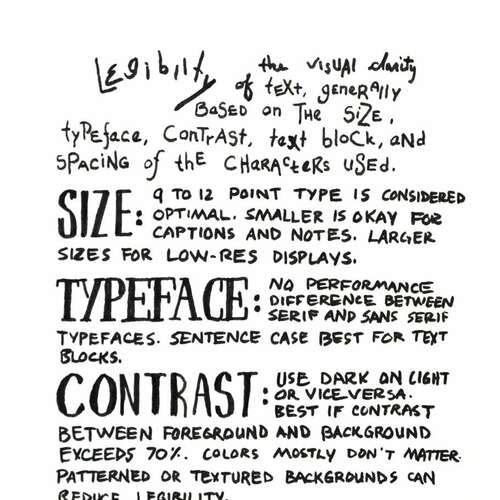 Legibilty the visual clarity
of text, generally
Based on The Size,
typeface, Contrast, text block, and
spacing of the Characters used.
SIZE: 9 TO 12 POINT TYPE IS CONSIDERED
OPTIMAL. SMALLER IS OKAY FOR
CAPTIONS AND NOTES. LARGER
SIZES FOR LOW-RES DISPLAYS.
TYPEFACE: NO PERFORMANCE
DIFFERENCE BETWEEN
SERIF AND SANS SERIF
TYPEFACES. SENTENCE CASE BEST FOR TEXT
BLOCKS.
CONTRAST: USE DARK ON LIGHT
OR VICE-VERSA.
BEST IF CONTRAST
BETWEEN FOREGROUND AND BACKGROUND
EXCEEDS 70%. COLORS MOSTLY DON'T MATTER.
PATTERNED OR TEXTURED BACKGROUNDS CAN
REDUCE LEGIBILITY.